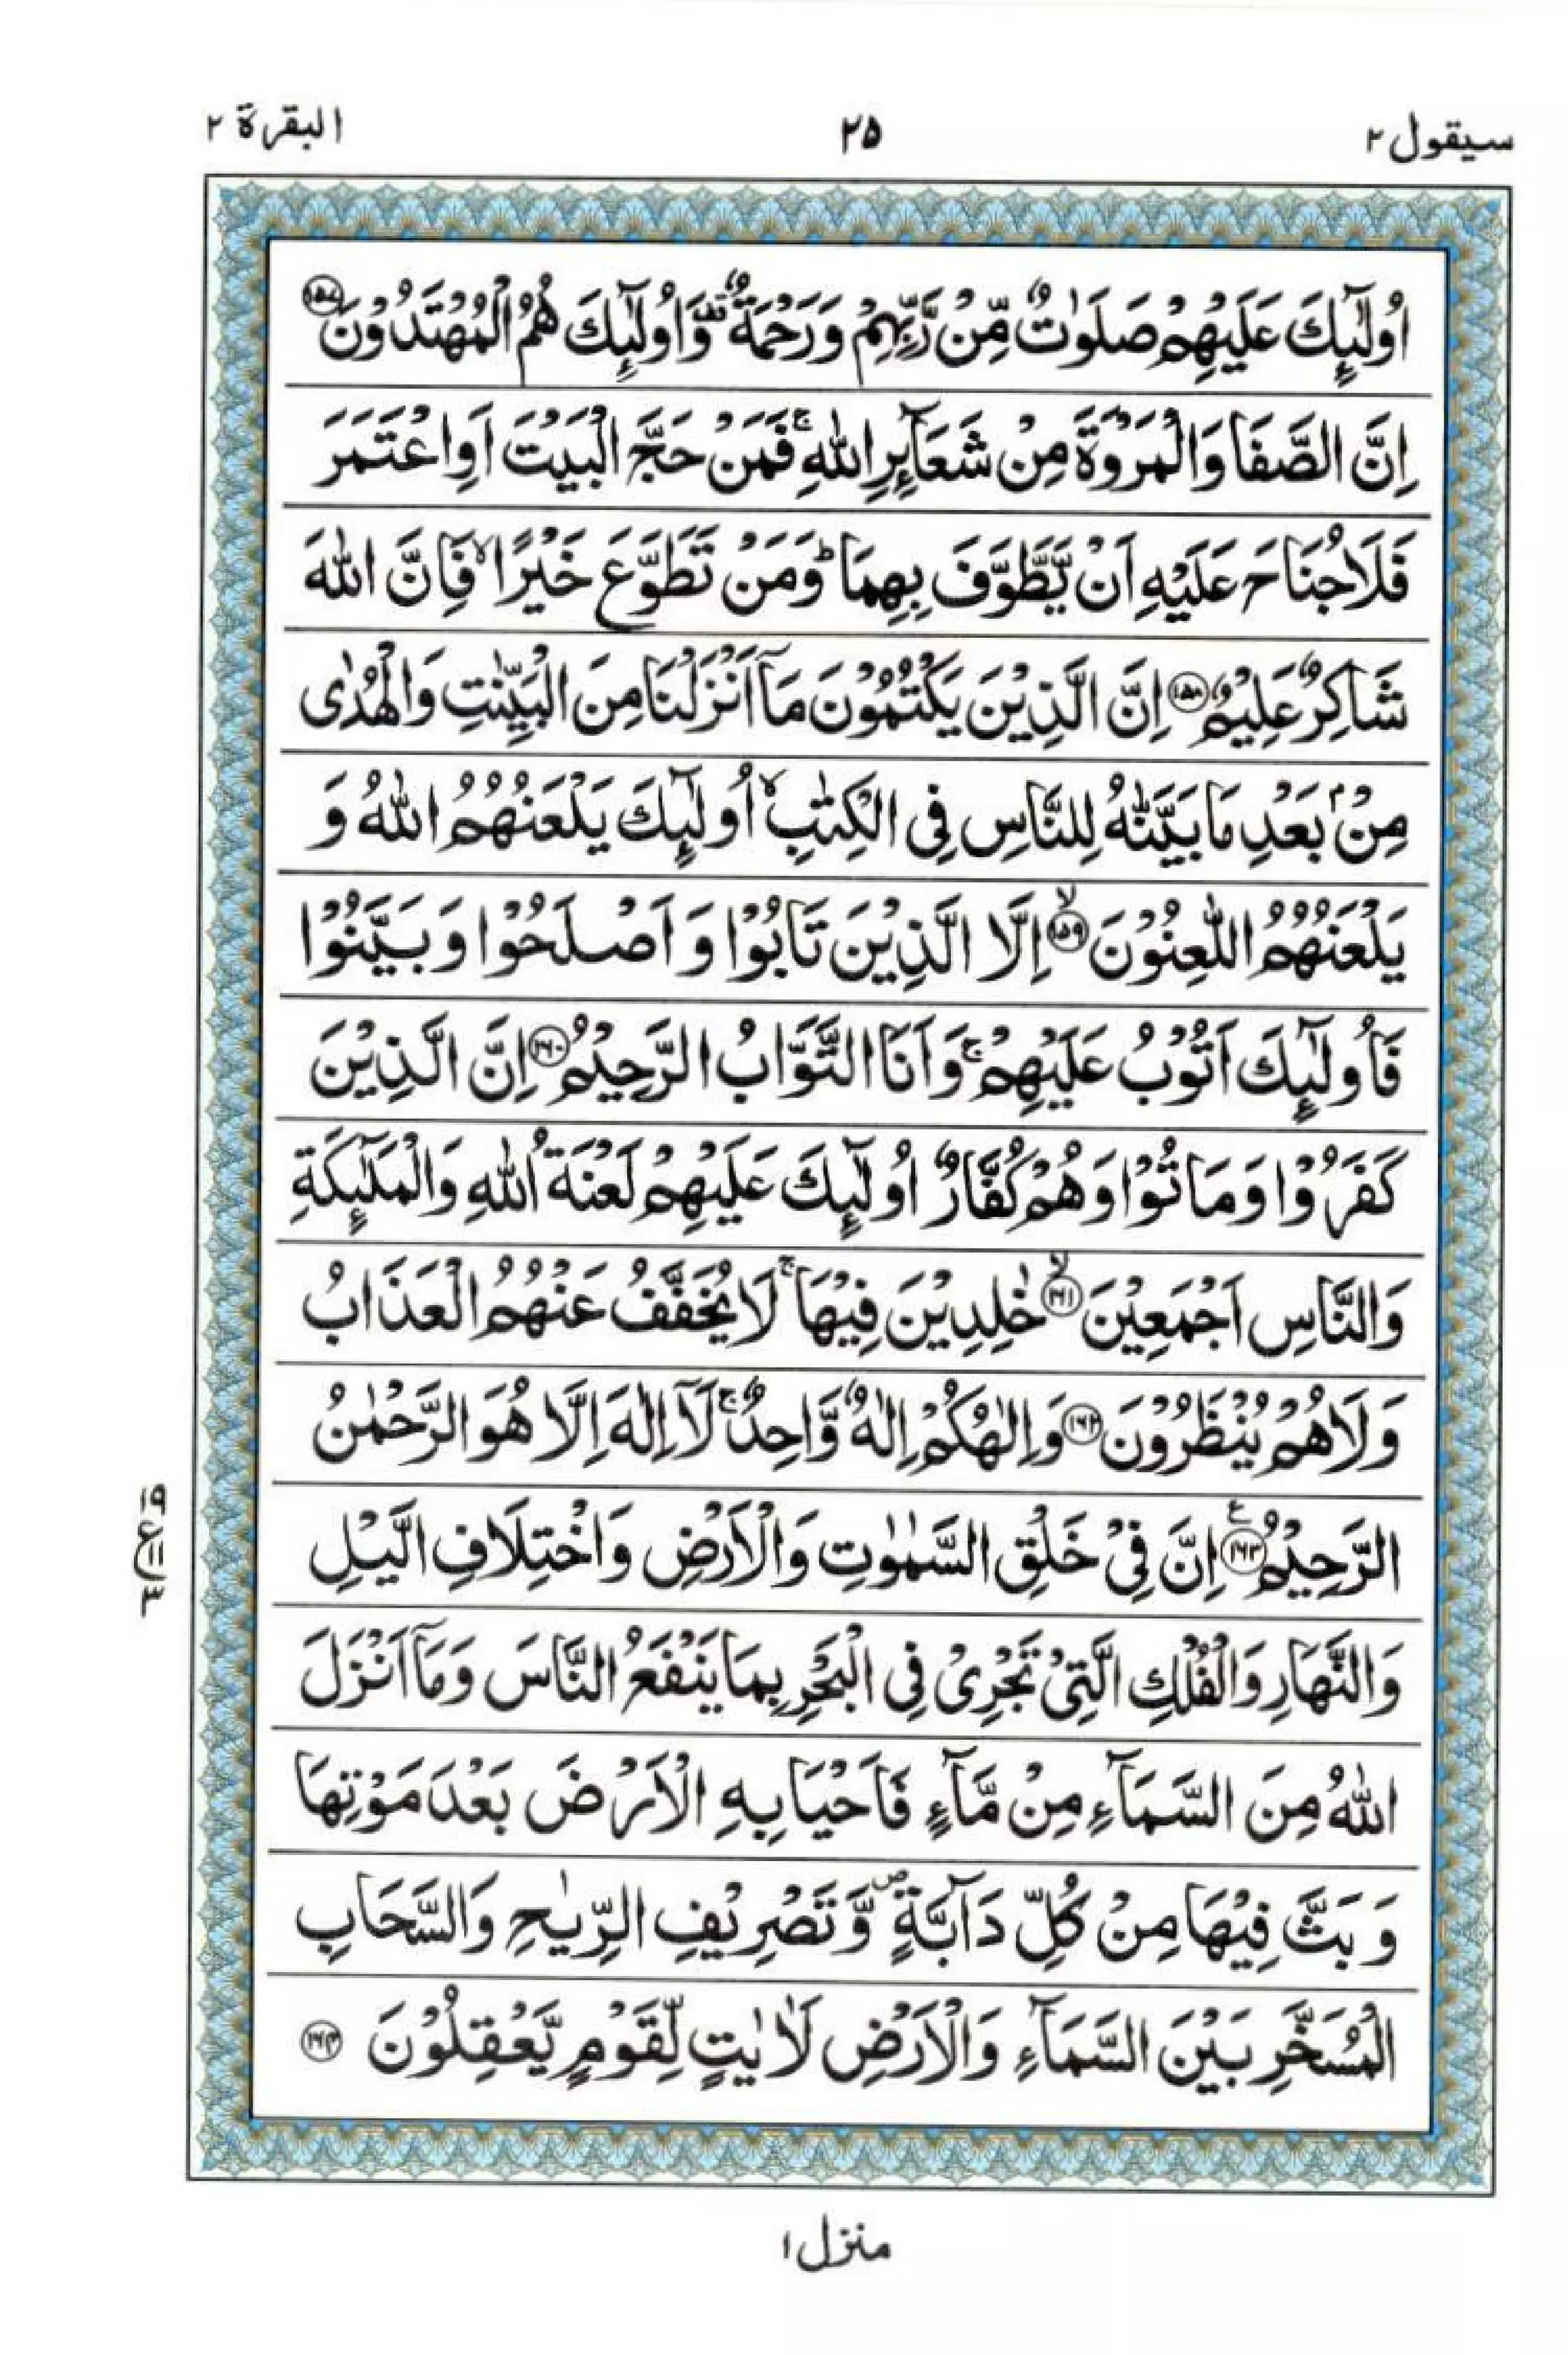 سيقول ٢
٢٥
البقرة ٢
اُولٰٓئِكَ عَلَيْهِمْ صَلَوٰتٌ مِّنْ رَّبِّهِمْ وَرَحْمَةٌ ۟ وَاُولٰٓئِكَ هُمُ الْمُهْتَدُوْنَ ١٥٧
اِنَّ الصَّفَا وَالْمَرْوَةَ مِنْ شَعَآئِرِ اللّٰهِ ۚ فَمَنْ حَجَّ الْبَيْتَ اَوِ اعْتَمَرَ
فَلَا جُنَاحَ عَلَيْهِ اَنْ يَّطَّوَّفَ بِهِمَا ؕ وَمَنْ تَطَوَّعَ خَيْرًا ۙ فَاِنَّ اللّٰهَ
شَاكِرٌ عَلِيْمٌ ١٥٨ اِنَّ الَّذِيْنَ يَكْتُمُوْنَ مَآ اَنْزَلْنَا مِنَ الْبَيِّنٰتِ وَالْهُدٰى
مِنْۢ بَعْدِ مَا بَيَّنّٰهُ لِلنَّاسِ فِى الْكِتٰبِ ۙ اُولٰٓئِكَ يَلْعَنُهُمُ اللّٰهُ وَ
يَلْعَنُهُمُ اللّٰعِنُوْنَ ۙ ١٥٩ اِلَّا الَّذِيْنَ تَابُوْا وَ اَصْلَحُوْا وَ بَيَّنُوْا
فَاُولٰٓئِكَ اَتُوْبُ عَلَيْهِمْ ۚ وَاَنَا التَّوَّابُ الرَّحِيْمُ ١٦٠ اِنَّ الَّذِيْنَ
كَفَرُوْا وَ مَاتُوْا وَهُمْ كُفَّارٌ اُولٰٓئِكَ عَلَيْهِمْ لَعْنَةُ اللّٰهِ وَالْمَلٰٓئِكَةِ
وَالنَّاسِ اَجْمَعِيْنَ ۙ ١٦١ خٰلِدِيْنَ فِيْهَا ۚ لَا يُخَفَّفُ عَنْهُمُ الْعَذَابُ
وَلَا هُمْ يُنْظَرُوْنَ ١٦٢ وَاِلٰهُكُمْ اِلٰهٌ وَّاحِدٌ ۚ لَآ اِلٰهَ اِلَّا هُوَ الرَّحْمٰنُ
الرَّحِيْمُ ١٦٣ ع اِنَّ فِيْ خَلْقِ السَّمٰوٰتِ وَالْاَرْضِ وَاخْتِلَافِ الَّيْلِ
١٩
ع ١١
٣
وَالنَّهَارِ وَالْفُلْكِ الَّتِيْ تَجْرِيْ فِى الْبَحْرِ بِمَا يَنْفَعُ النَّاسَ وَمَآ اَنْزَلَ
اللّٰهُ مِنَ السَّمَآءِ مِنْ مَّآءٍ فَاَحْيَا بِهِ الْاَرْضَ بَعْدَ مَوْتِهَا
وَ بَثَّ فِيْهَا مِنْ كُلِّ دَآبَّةٍ ۪ وَّتَصْرِيْفِ الرِّيٰحِ وَالسَّحَابِ
الْمُسَخَّرِ بَيْنَ السَّمَآءِ وَالْاَرْضِ لَاٰيٰتٍ لِّقَوْمٍ يَّعْقِلُوْنَ ١٦٤
منزل ١